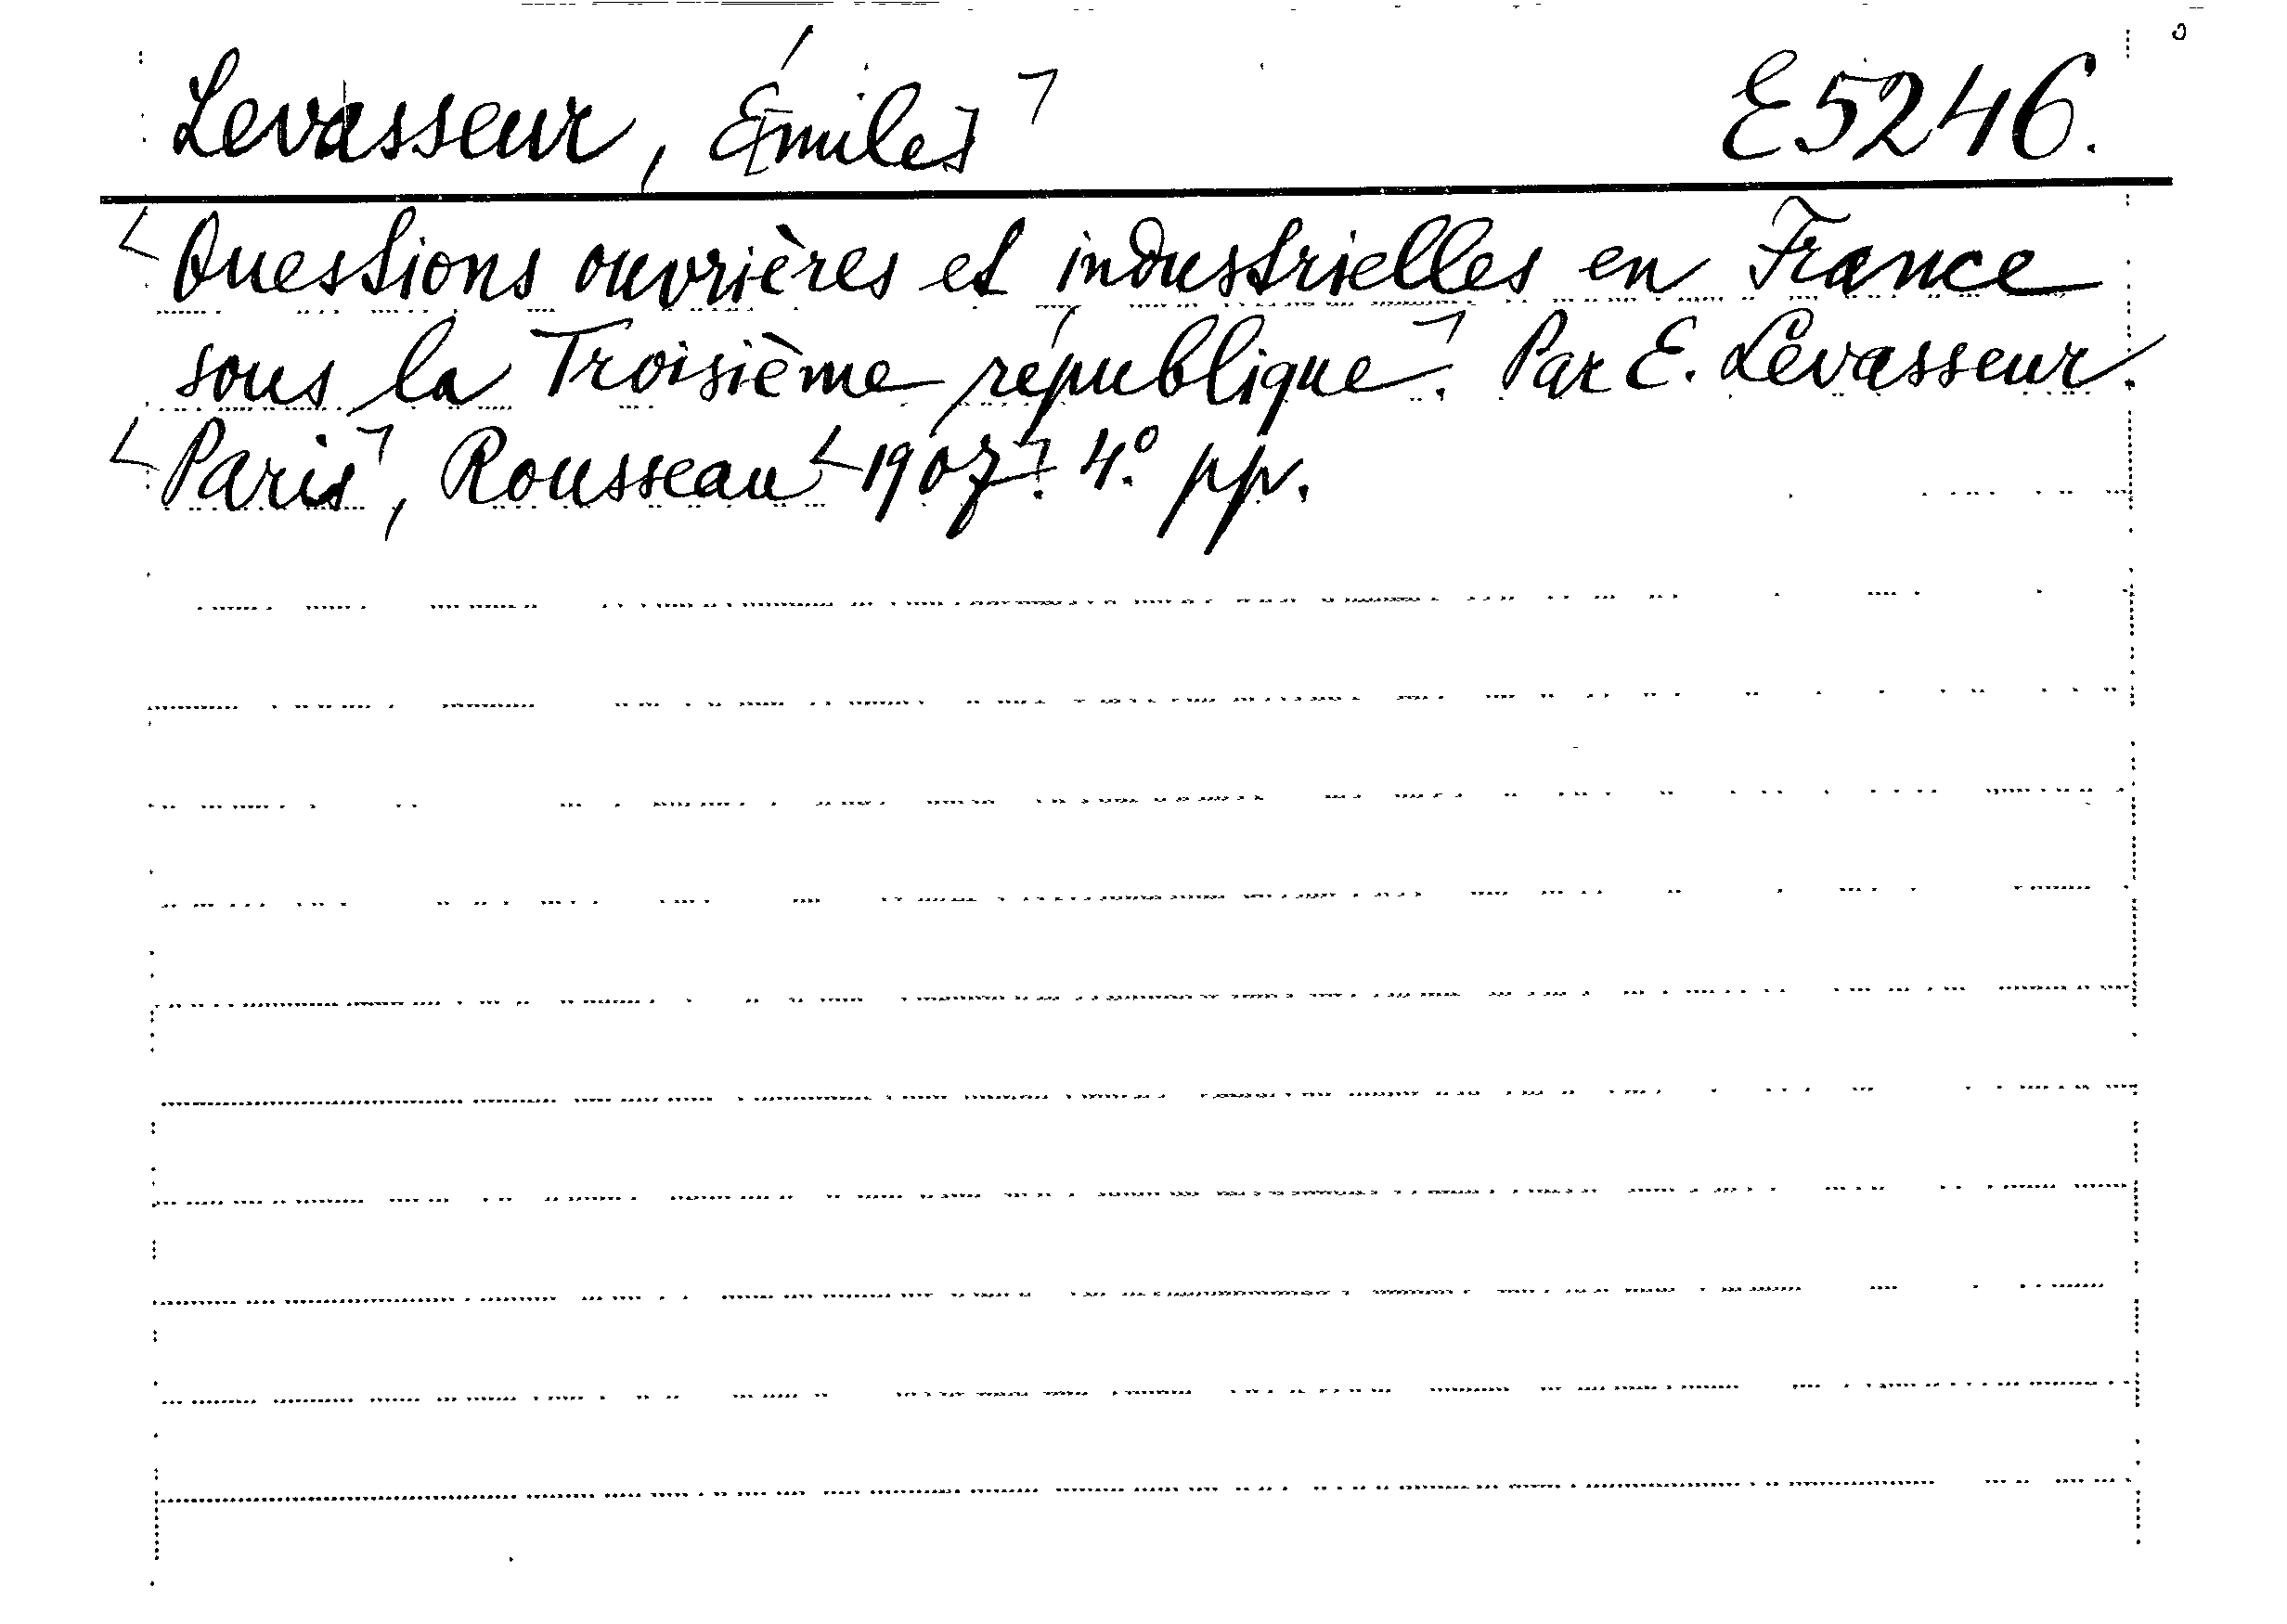 Levasseur, É[mile] E5246.
Questions ouvrières et industrielles en France
sous la Troisième république. Par E. Levasseur.
Paris, Rousseau 1907. 4.º pp.